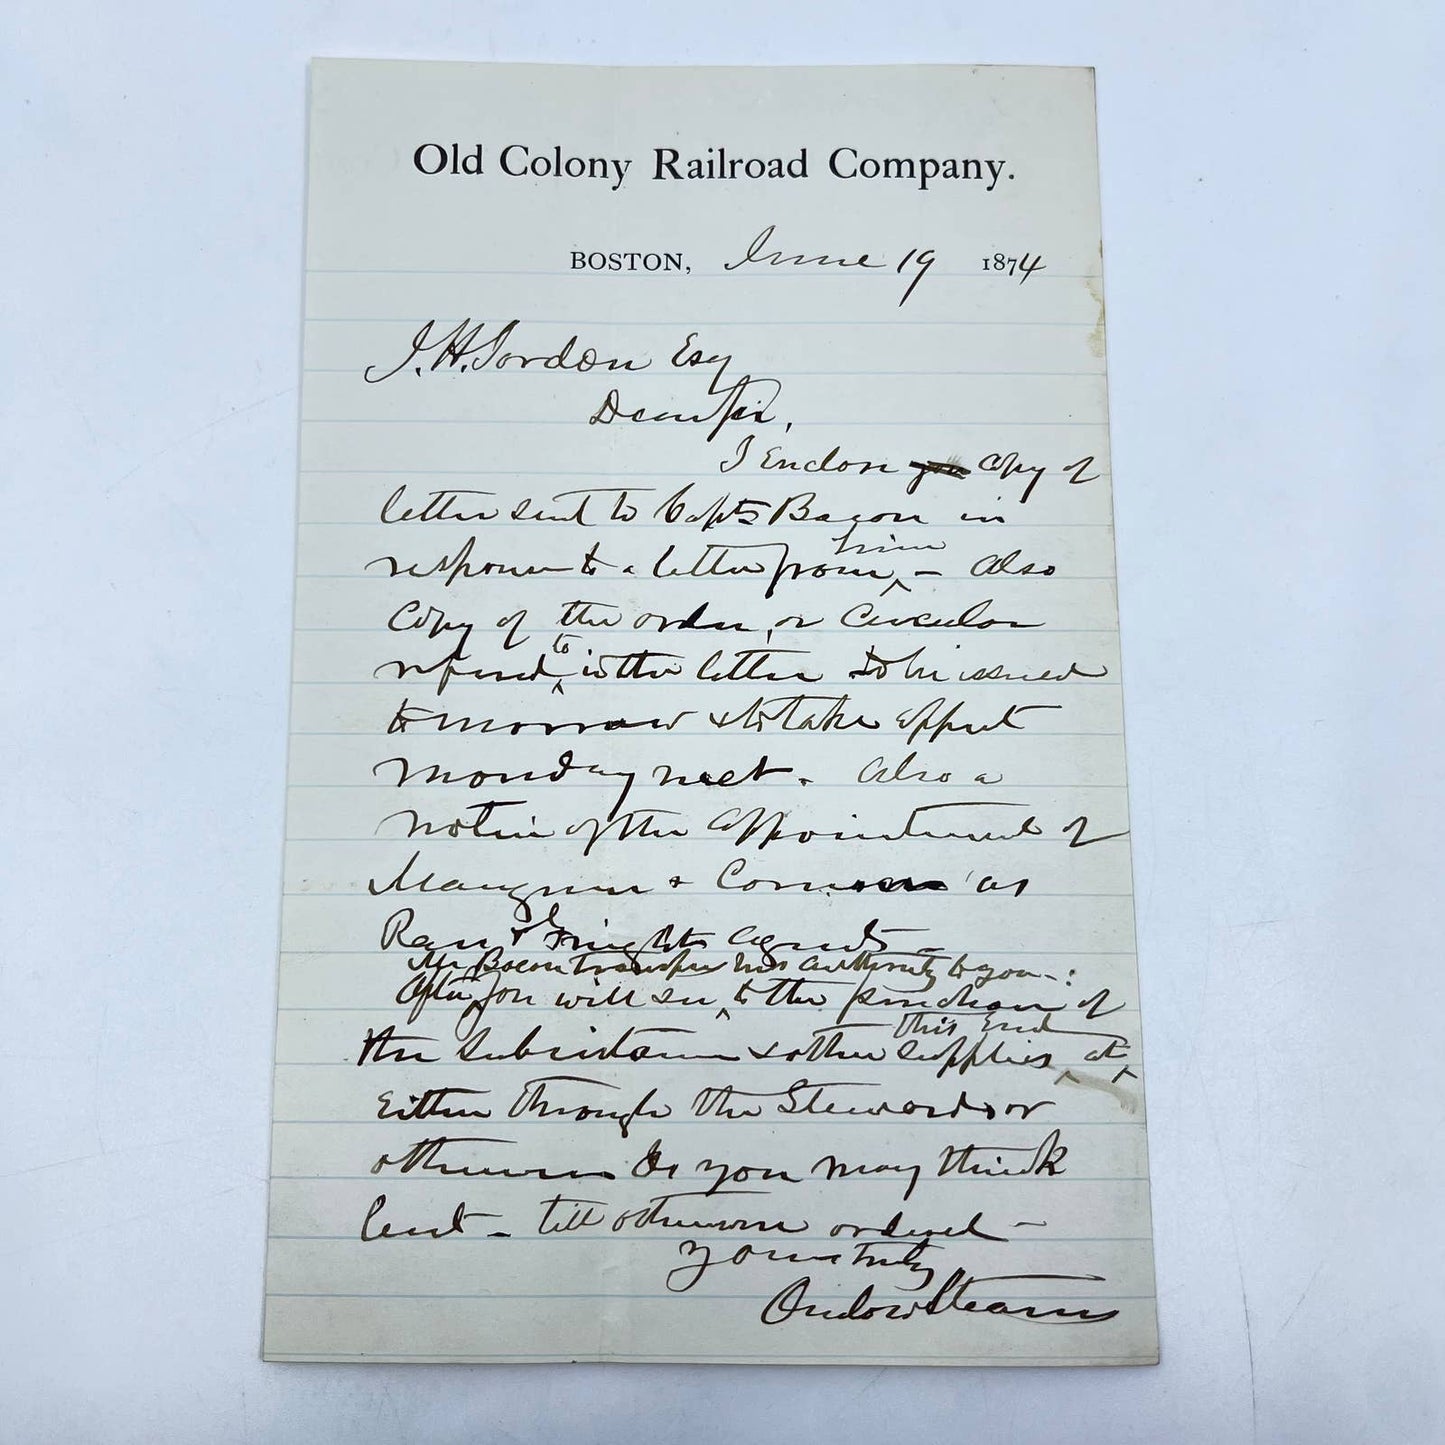 Old Colony Railroad Company.
BOSTON, June 19 1874
J. H. Jordon Esq
Dear Sir,
I Enclose you copy of
letter sent to Capt Bacon in
response to a letter from him – also
copy of the order, or circular
referred to in the letter to be issued
tomorrow & to take effect
Monday next. Also a
notice of the appointment of
& as
& freight agents –
After Mr Bacon transfers his authority to you – you will see to the purchase of
the subsistence & other supplies this End at
Either through the Stewards or
otherwise as you may think
best – till otherwise ordered –
yours truly
Onslow Stearns